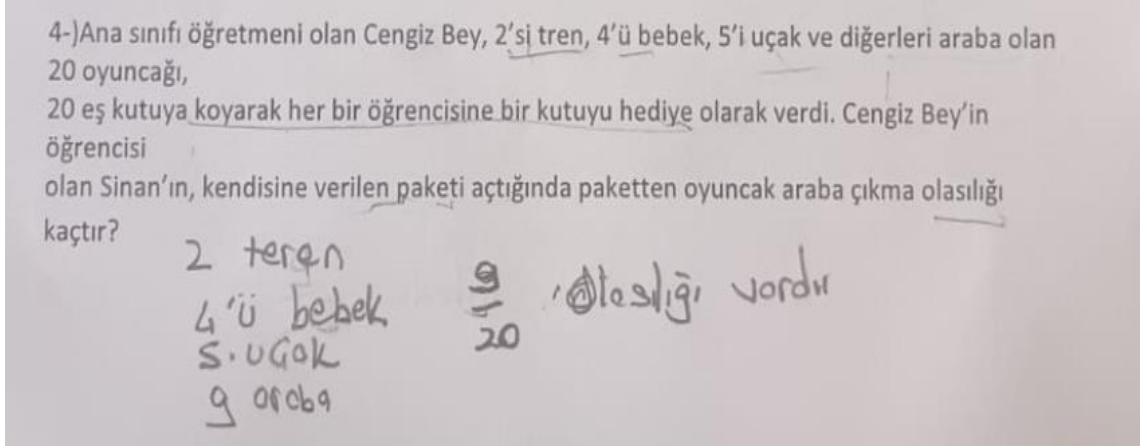 4-)Ana sınıfı öğretmeni olan Cengiz Bey, 2'si tren, 4'ü bebek, 5'i uçak ve diğerleri araba olan
20 oyuncağı,
20 eş kutuya koyarak her bir öğrencisine bir kutuyu hediye olarak verdi. Cengiz Bey'in
öğrencisi
olan Sinan'ın, kendisine verilen paketi açtığında paketten oyuncak araba çıkma olasılığı
kaçtır?
2 teren
4'ü bebek
5. uçak
9 araba
9/20 olasılığı vardır